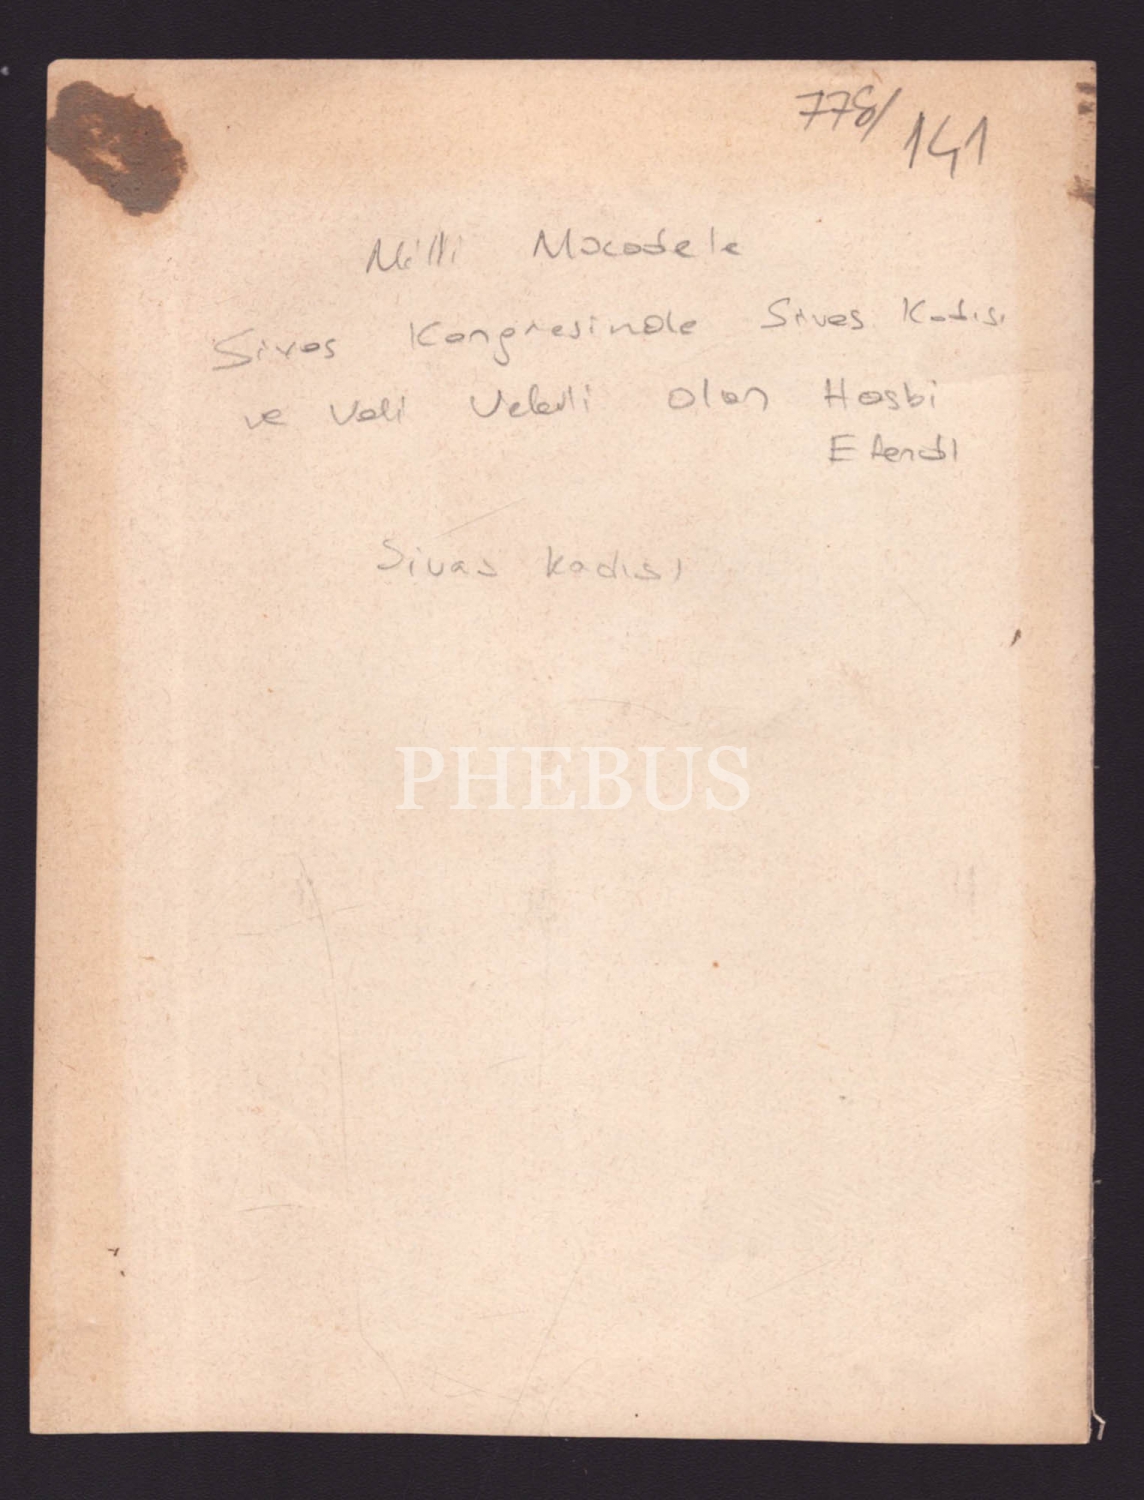 778/141
Milli Mücadele
Sivas Kongresinde Sivas Kadısı
ve Vali Vekili olan Hasbi
Efendi
Sivas Kadısı
PHEBUS